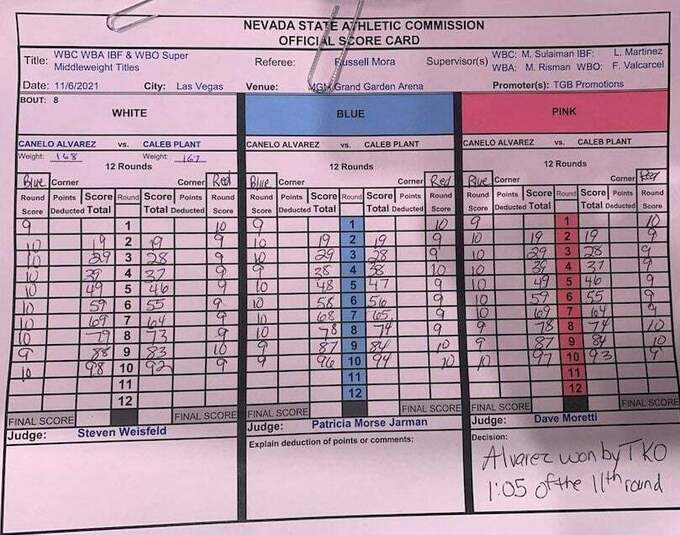 NEVADA STATE ATHLETIC COMMISSION
OFFICIAL SCORE CARD
Title: WBC WBA IBF & WBO Super Middleweight Titles Referee: Russell Mora Supervisor(s) WBC: M. Sulaiman IBF: L. Martinez
WBA: M. Risman WBO: F. Valcarcel
Date: 11/6/2021 City: Las Vegas Venue: MGM Grand Garden Arena Promoter(s): TGB Promotions
BOUT: 8
WHITE BLUE PINK
CANELO ALVAREZ vs. CALEB PLANT CANELO ALVAREZ vs. CALEB PLANT CANELO ALVAREZ vs. CALEB PLANT
Weight: 168 Weight: 167
12 Rounds 12 Rounds 12 Rounds
Blue Corner Corner Red Blue Corner Corner Red Blue Corner Corner Red
Round Score Points Deducted Score Total Round Score Total Points Deducted Round Score Round Score Points Deducted Score Total Round Score Total Points Deducted Round Score Round Score Points Deducted Score Total Round Score Total Points Deducted Round Score
9 1 10 9 1 10 9 1 10
10 19 2 19 9 10 19 2 19 9 10 19 2 19 9
10 29 3 28 9 10 29 3 28 9 10 29 3 28 9
10 39 4 37 9 9 38 4 38 10 10 39 4 37 9
10 49 5 46 9 10 48 5 47 9 10 49 5 46 9
10 59 6 55 9 10 58 6 56 9 10 59 6 55 9
10 69 7 64 9 10 68 7 65 9 10 69 7 64 9
10 79 8 73 9 10 78 8 74 9 9 78 8 74 10
9 88 9 83 10 9 87 9 84 10 9 87 9 84 10
10 98 10 92 9 9 96 10 94 10 10 97 10 93 9
11 11 11
12 12 12
FINAL SCORE FINAL SCORE FINAL SCORE FINAL SCORE FINAL SCORE FINAL SCORE
Judge: Steven Weisfeld Judge: Patricia Morse Jarman Judge: Dave Moretti
Explain deduction of points or comments: Decision:
Alvarez won by TKO
1:05 of the 11th round